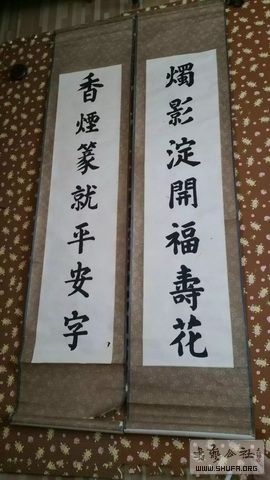 燭影淀開福壽花
香煙篆就平安字
書藝公社
WWW.SHUFA.ORG